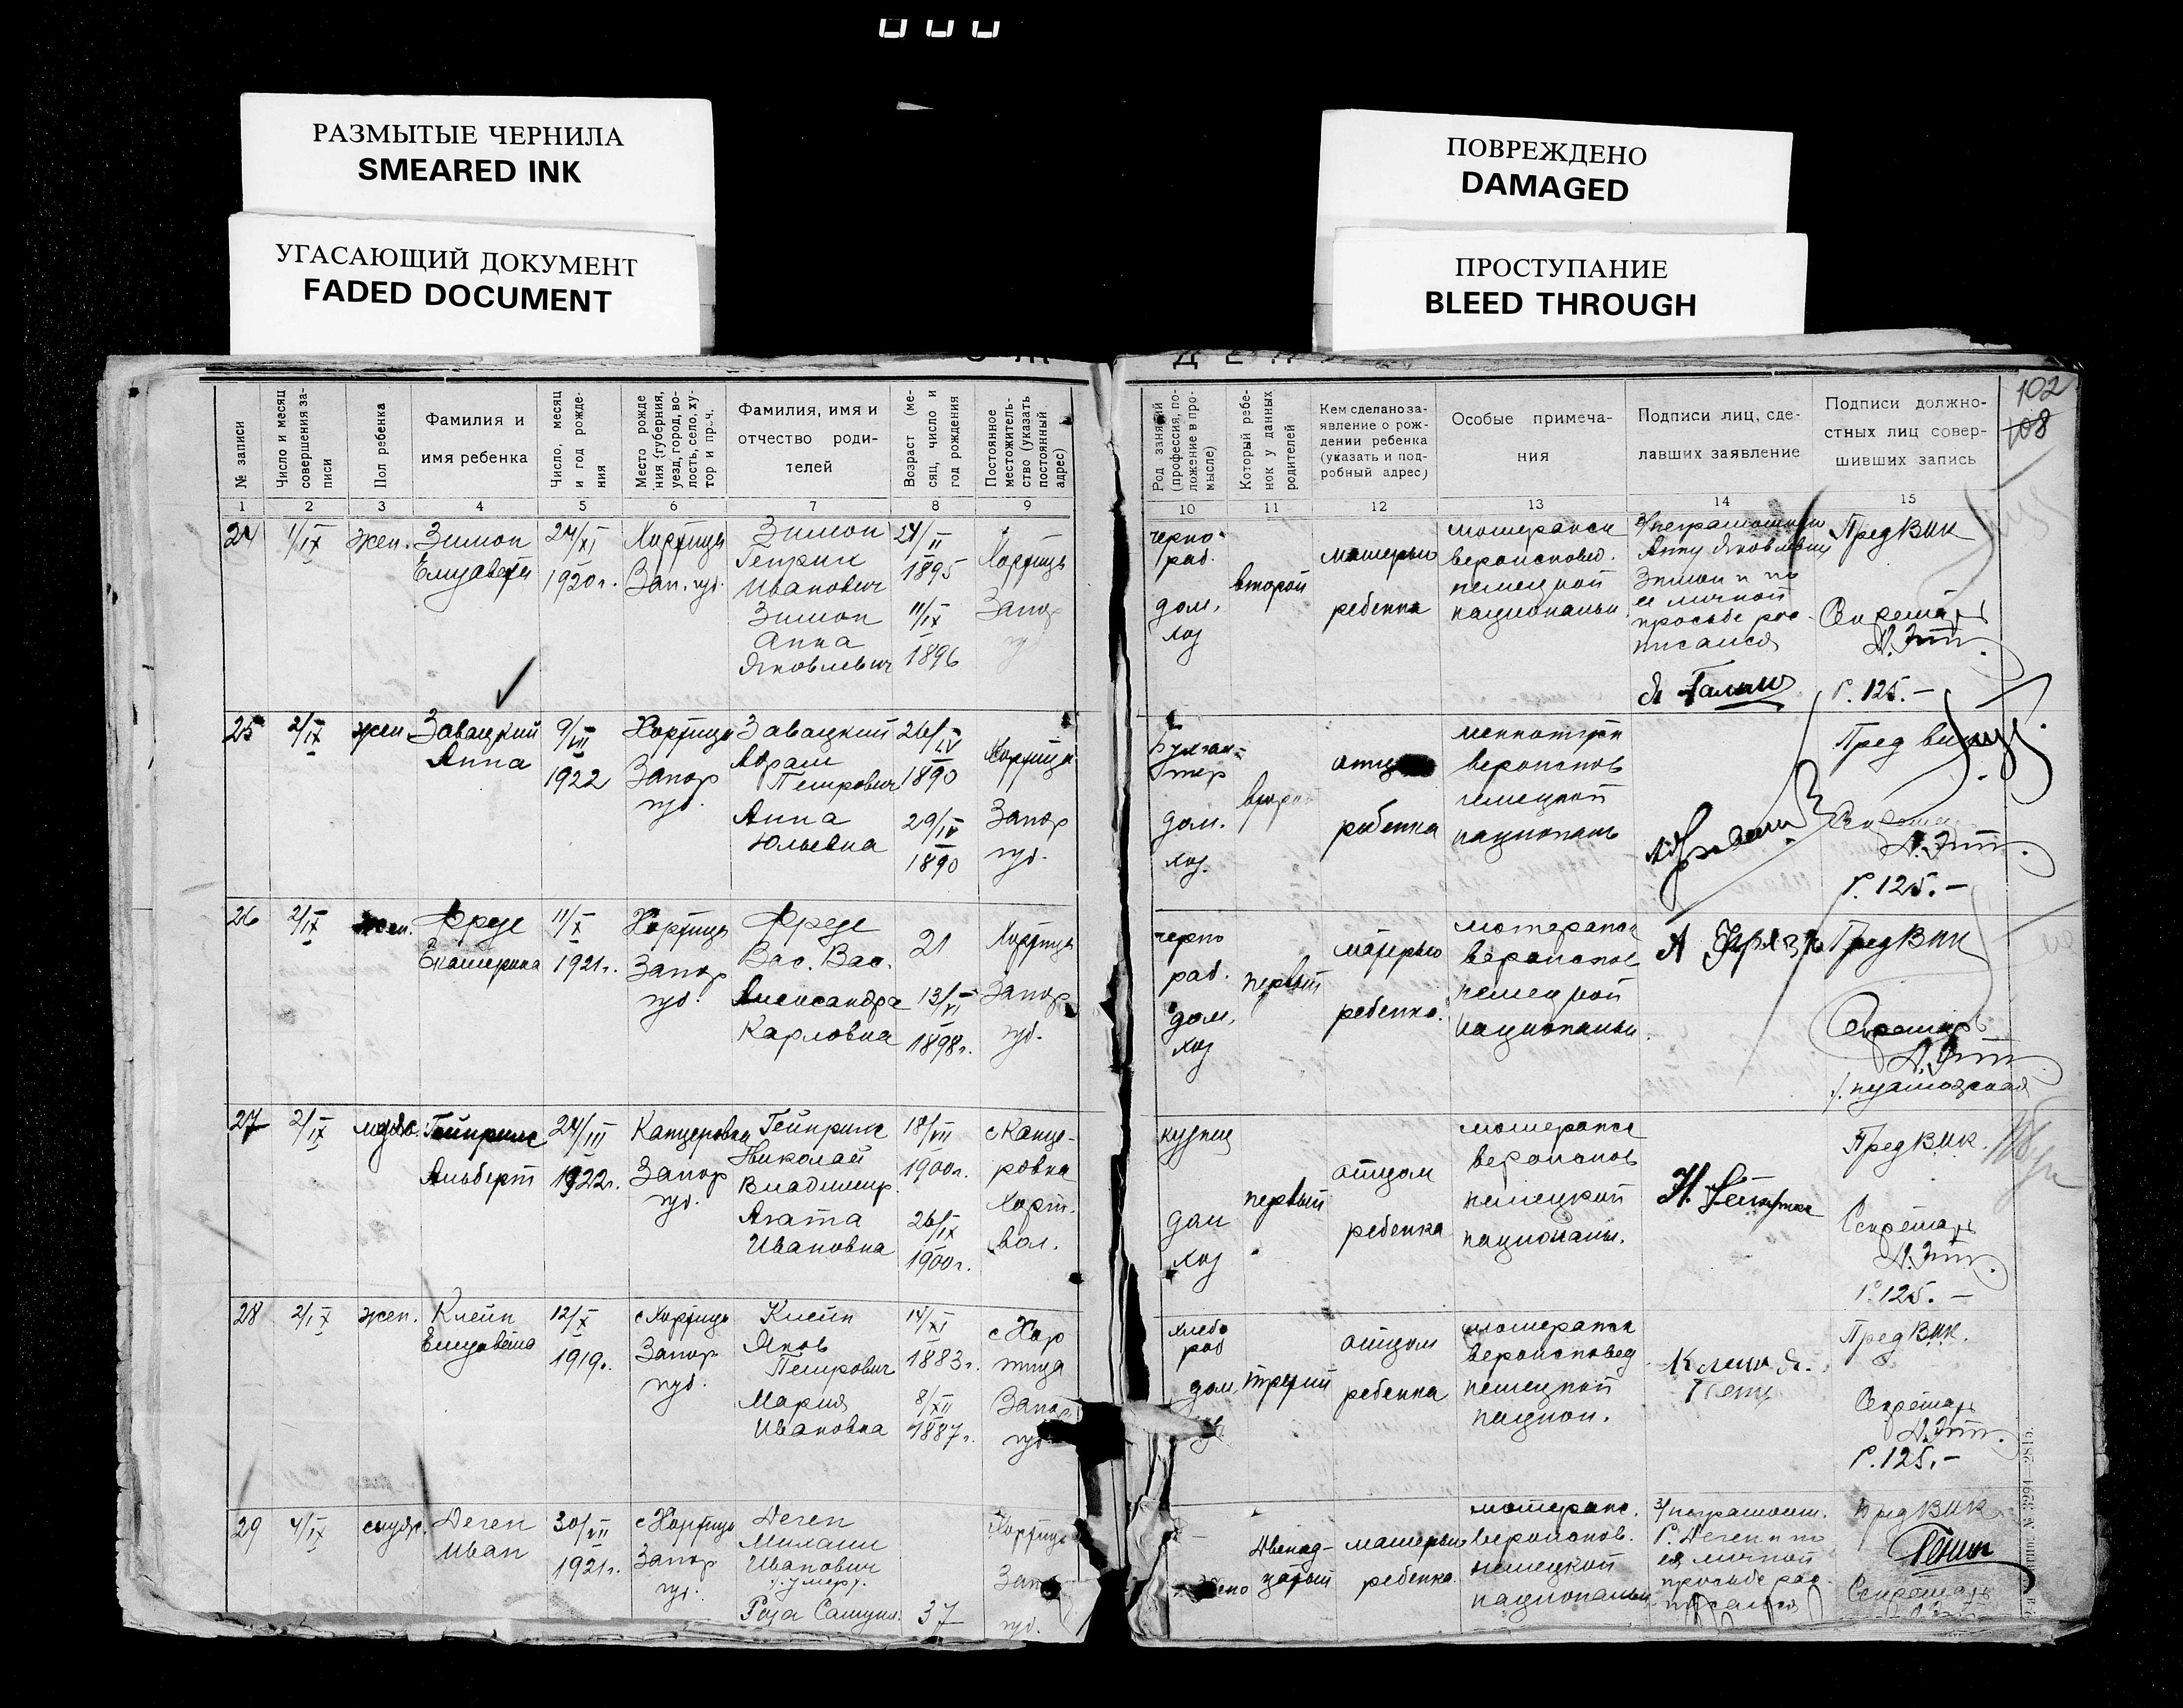 РАЗМЫТЫЕ ЧЕРНИЛА
SMEARED INK
УГАСАЮЩИЙ ДОКУМЕНТ
FADED DOCUMENT
ПОВРЕЖДЕНО
DAMAGED
ПРОСТУПАНИЕ
BLEED THROUGH
102
108
№ записи
Число и месяц
совершения за-
писи
Пол ребенка
Фамилия и
имя ребенка
Число, месяц
и год рожде-
ния
Место рожде
ния (губерния,
уезд, город, во-
лость, село, ху-
тор и проч.
Фамилия, имя и
отчество роди-
телей
Возраст (ме-
сяц, число и
год рождения
Постоянное
местожитель-
ство (указать
постоянный
адрес)
Род занятий
(профессия, по-
ложение в про-
мысле)
Который ребе-
нок у данных
родителей
Кем сделано за-
явление о рож-
дении ребенка
(указать и под-
робный адрес)
Особые примеча-
ния
Подписи лиц, сде-
лавших заявление
Подписи должно-
стных лиц совер-
шивших запись
1 2 3 4 5 6 7 8 9
10 11 12 13 14 15
24
1/IX
жен.
Зимон
Елизавета
24/XI
1920г.
Хортица
Зап. губ.
Зимон
Генрих
Иванович
Зимон
Анна
Яковлевич
24/II
1895
11/IX
1896
Хортица
Запор
черно-
раб.
дом.
хоз
второй
матерью
ребенка
лютеранск
вероисповед.
немецкой
национальн
з/неграмотную
Анну Яковлевну
Зимон и по
ее личной
просьбе рос-
писался
ПредВИК
Секретарь
Р. 125.-
25
2/IX
жен
Завацкий
Анна
9/VII
1922
Хортица
Запор
губ.
Завацкий
Абрам
Петрович
Анна
Юльевна
26/IV
1890
29/IV
1890
Хортица
Запор
губ.
Бухгал-
тер
дом.
хоз.
второй
отц
ребенка
меннонитск
вероиспов
немецкой
националь
Пред вик
Р. 125.-
26
2/IX
жен.
Фрезе
Екатерина
11/X
1921г.
Хортица
Запор
губ.
Фрезе
Вас. Вас.
Александра
Карловна
21
13/VI
1898г.
Хортица
Запор
губ.
черно
раб.
дом.
хоз
первый
матерью
ребенка.
лютеранск
вероиспов
немецкой
национальн.
А Фрезе
ПредВИК
Секретарь
27
2/IX
мужс.
Гейнрихс
Альберт
24/III
1922г.
Канцеровка
Запор
губ.
Гейнрихс
Николай
Владимир.
Агата
Ивановна
18/VII
1900г.
26/IX
1900г.
с Канце-
ровка
Хорт.
вол.
кузнец
дом
хоз
первый
отцом
ребенка
лютеранск
вероиспов
немецкой
националь.
ПредВИК.
Секретарь
Р. 125.-
28
2/IX
жен.
Клейн
Елизавета
12/X
1919г.
с Хортица
Запор
губ.
Клейн
Яков
Петрович
Мария
Ивановна
14/XI
1883г.
8/XII
1887г.
с Хор
тица
Запор
губ
хлебо
роб
дом.
третий
отцом
ребенка
лютеранск
вероисповед
немецкой
национ.
Клейн Я.
ПредВИК.
Секретарь
Р. 125.-
29
4/IX
Деген
Иван
30/VII
1921г.
с Хортица
Запор
губ.
Деген
Михаил
Иванович
Роза Самуил.
37
Хортица
Зап
губ.
Двенад-
цатый
матерью
ребенка
лютеранс.
вероиспов.
немецкой
национальн
з/неграмотн.
Р. Деген и по
ея личной
просьбе рас-
писался
ПредВИК
Секретарь